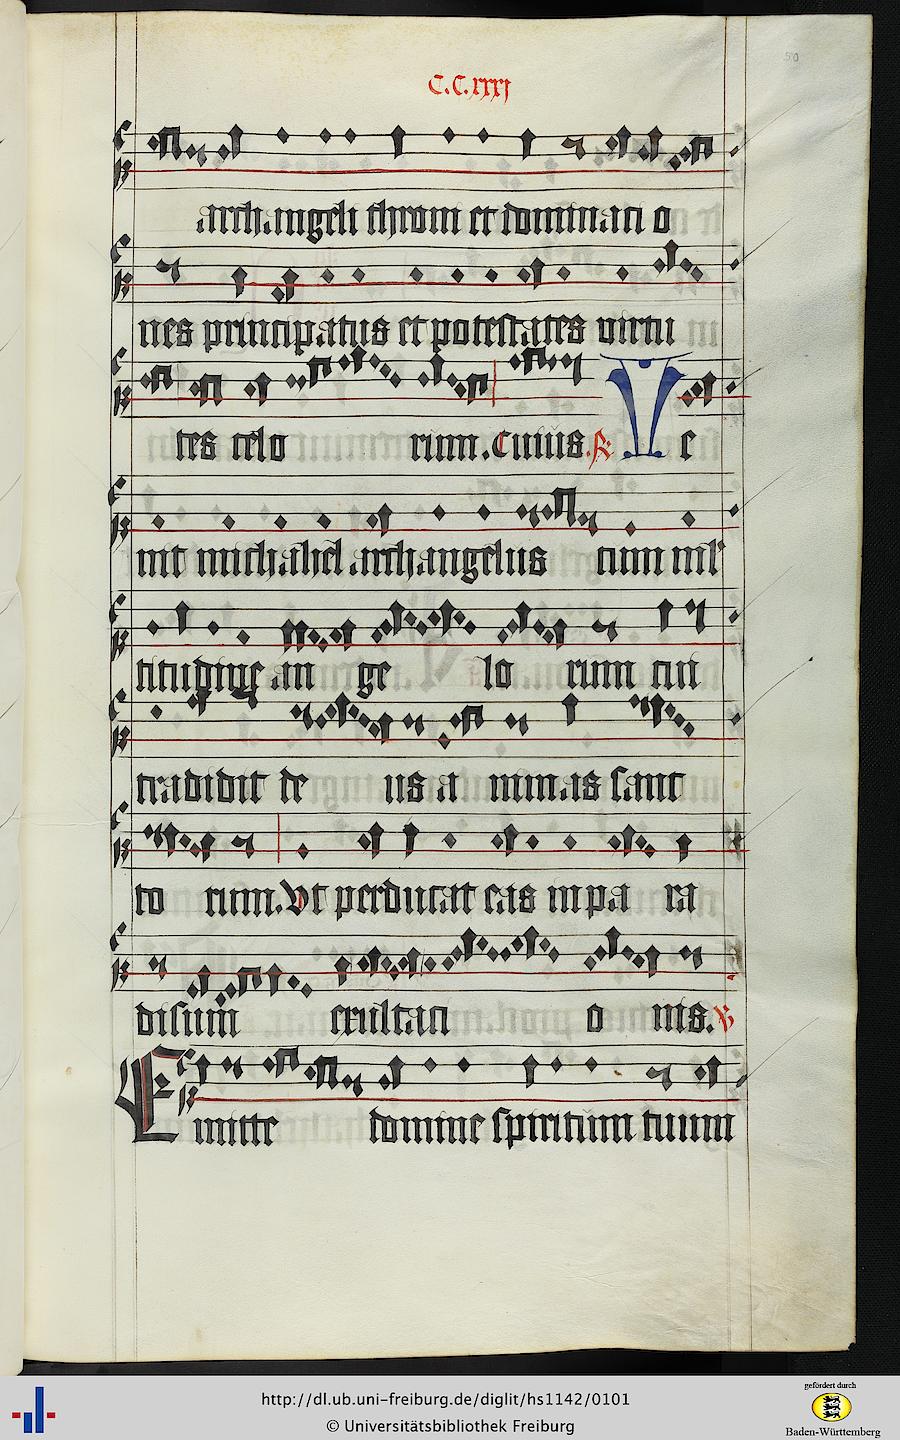 C.C.xxxj
50
archangeli throni et dominati o
nes principatus et potestates virtu
tes celo rum. Cuius. R. V e
nit michahel archangelus cum ml'
titudine an ge lo rum cui
tradidit de us a nimas sanc
to rum. Vt perducat eas in pa ra
disum exultati o nis. V
E mitte domine spiritum tuum
http://dl.ub.uni-freiburg.de/diglit/hs1142/0101
© Universitätsbibliothek Freiburg
gefördert durch
Baden-Württemberg